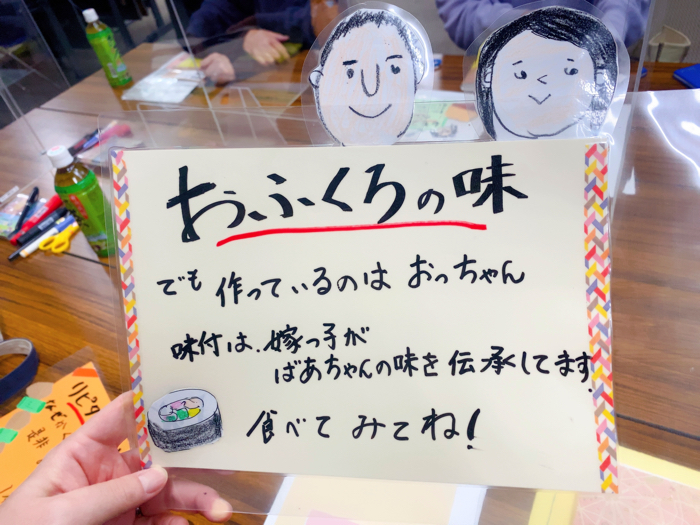 おふくろの味
でも 作っているのは おっちゃん
味付は、嫁っ子が
ばあちゃんの味を伝承してます。
食べて みてね!
リピタ